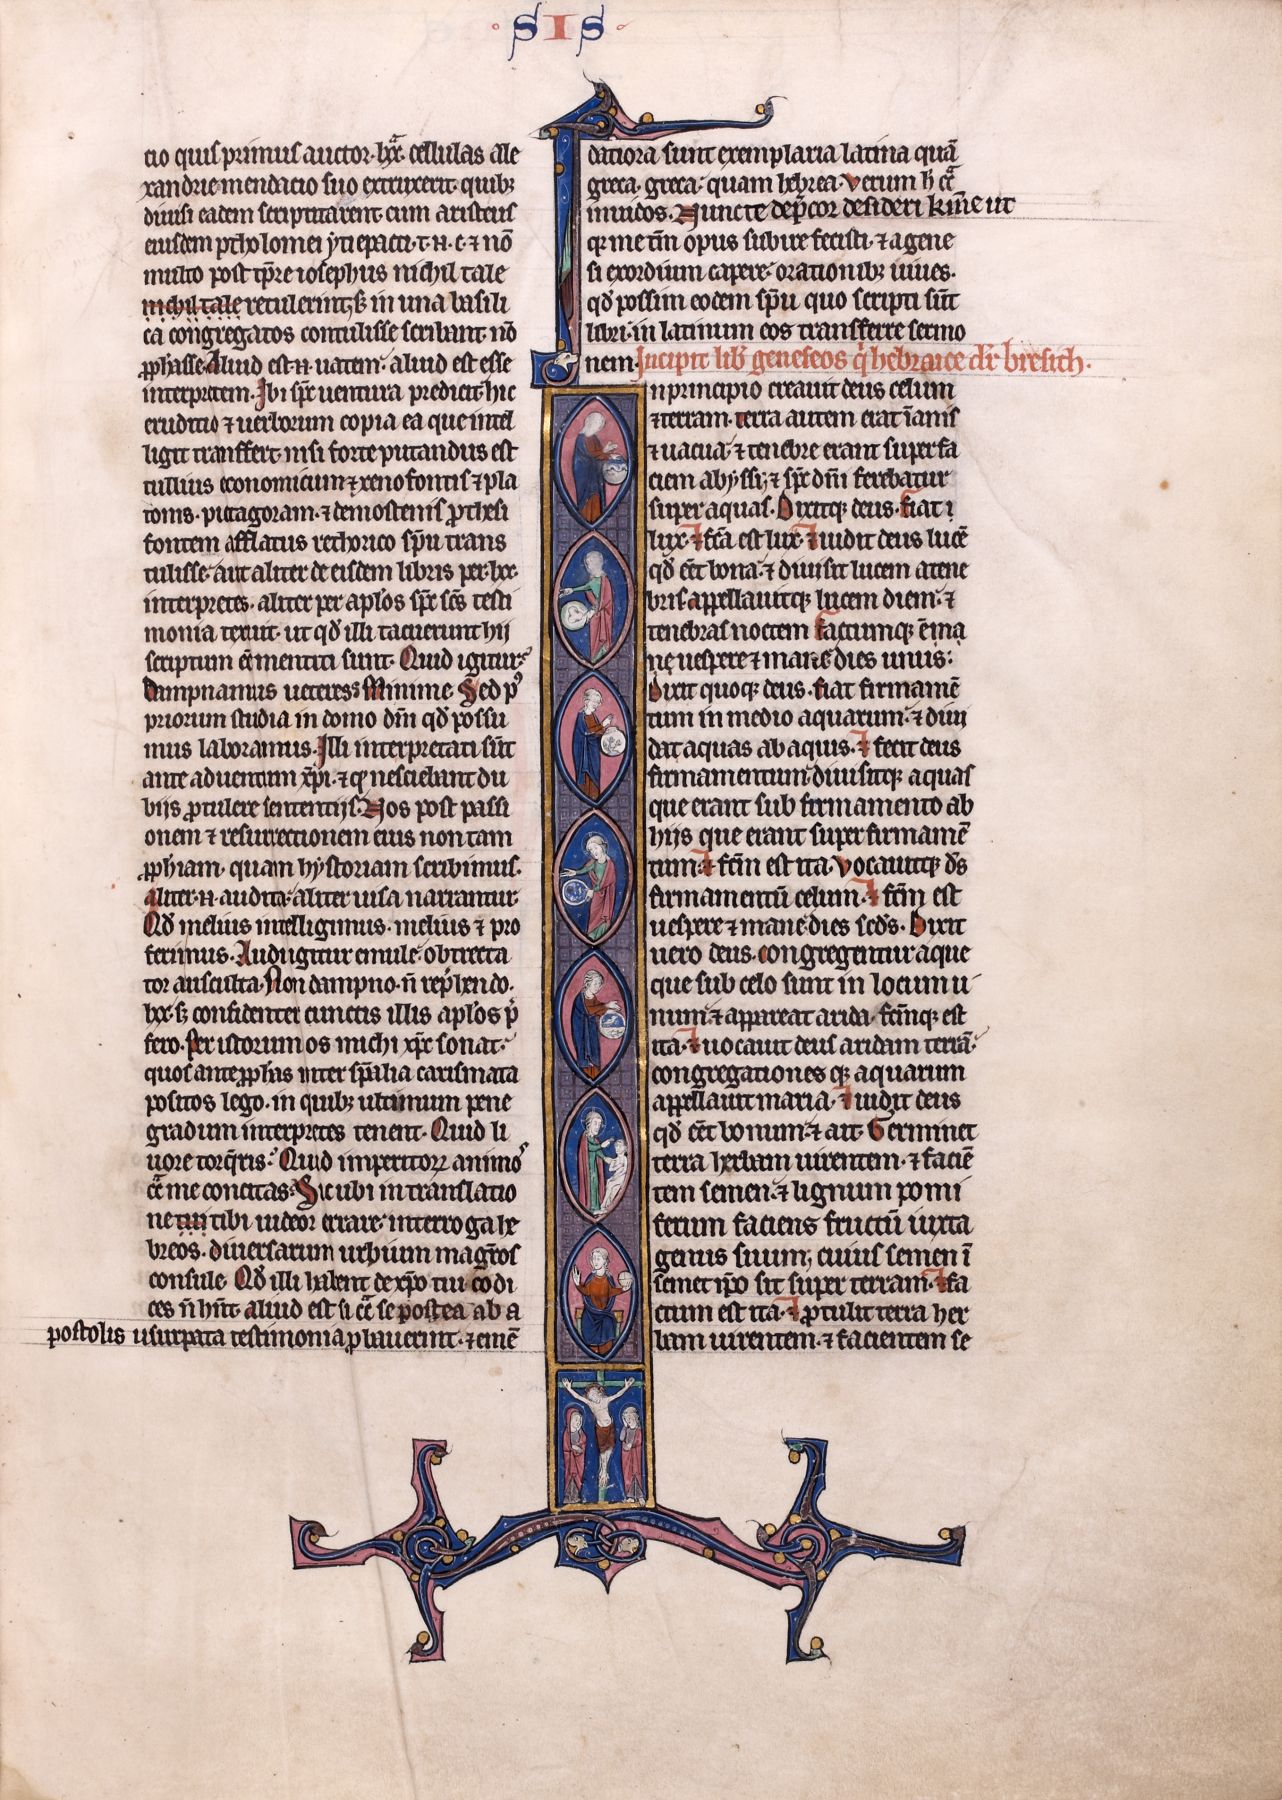 SIS
tio quis primus auctor · lxx · cellulas ale
xandrie mendacio suo extruxerit · quibꝫ
diuisi eadem scriptitarent cum aristeus
eiusdem ptholomei
multo post tp̄re iosephus nichil tale
nichil tale retulerint sꝫ in una basili
ca congregatos contulisse scribant · nō
ꝓphasse · Aliud est · n̄ · uatem · aliud est esse
interpretem · Ibi sp̄c uentura predicit · hic
eruditio ⁊ uerborum copia ea que intel
ligit transfert · nisi forte putandus est
tullius economicum ⁊ xenofontis ⁊ pla
tonis · pitagoram · ⁊ demostenis ꝓthesi
fontem afflatus rethorico sp̄u trans
tulisse · aut aliter de eisdem libris per · lxx ·
interpretes · aliter per apl'os sp̄c sc̄s testi
monia texuit · ut qd̄ illi tacuerunt hij
scriptum ēmentiti sunt · Quid igitur ·
Dampnamus ueteres · Minime · Sed pꝰ
priorum studia in domo dn̄i qd̄ possu
mus laboramus · Illi interpretati sūt
ante aduentum xp̄i · ⁊ qꝫ nesciebant du
bijs ꝓtulere sententijs · Nos post passi
onem ⁊ resurrectionem eius non tam
ꝓphiam · quam hystoriam scribimus ·
Aliter · n̄ · audita · aliter uisa narrantur ·
Qd̄ melius intelligimus · melius ⁊ pro
ferimus · Audi igitur emule · obtrecta
tor ausculta · Non dampno · n̄ rep̄hendo ·
lxx · sꝫ confidenter cunctis illis apl'os p̄
fero · Per istorum os michi xp̄c sonat ·
quos ante ꝓphas inter sp̄alia carismata
positos lego · in quibꝫ ultimum pene
gradum interpretes tenent · Quid li
uore torq̄ris · Quid imperitorꝝ animoˢ
ꝯͣ me concitas · Sicubi in translatio
ne tibi uideor errare · interroga he
breos · diuersarum urbium magr̄os
consule · Qd̄ illi habent de xp̄o tui codi
ces n̄ hn̄t · aliud est si ꝯͣ se postea ab a
postolis usurpata testimonia ꝓbauerint · ⁊ emē
datiora sunt exemplaria latina quā
greca · greca · quam hebrea · Verum h̄ ꝯͣ
inuidos · Nunc te dep̄cor desideri km̄e ut
qꝫ me tm̄ opus subire fecisti · ⁊ a gene
si exordium capere · orationibꝫ iuues ·
qd̄ possim eodem sp̄u quo scripti sūt
libri · in latinum eos transferre sermo
nem · Incipit lib̄ geneseos q̄ hebraice dr̄ bresich ·
n principio creauit deus celum
⁊ terram · terra autem erat īanis
⁊ uacua · ⁊ tenebre erant super fa
ciem abyssi · ⁊ sp̄c dn̄i ferebatur
super aquas · Dixitqꝫ deus · fiat
lux · ⁊ fc̄a est lux · ⁊ uidit deus lucē
qd̄ eēt bona · ⁊ diuisit lucem a tene
bris · appellauitqꝫ lucem diem · ⁊
tenebras noctem factumqꝫ ē ma
ne uespere ⁊ mane dies unus :
Dixit quoqꝫ deus · fiat firmamē
tum in medio aquarum · ⁊ diui
dat aquas ab aquis · ⁊ fecit deus
firmamentum · diuisitqꝫ aquas
que erant sub firmamento ab
hijs que erant super firmamē
tum · ⁊ fc̄m est ita · Vocauitqꝫ ds̄
firmamentū celum · ⁊ fc̄m est
uespere ⁊ mane · dies scd̄s · Dixit
uero deus · congregentur aque
que sub celo sunt in locum u
num · ⁊ appareat arida · fc̄mqꝫ est
ita · ⁊ uocauit deus aridam terrā ·
congregationes qꝫ aquarum
appellauit maria · ⁊ uidit deus
qd̄ eēt bonum · ⁊ ait · Germinet
terra herbam uirentem · ⁊ faciē
tem semen · ⁊ lignum pomi
ferum faciens fructū iuxta
genus suum · cuius semen ī
semet ip̄o sit super terram · ⁊ fa
ctum est ita · ⁊ ꝓtulit terra her
bam uirentem · ⁊ facientem se